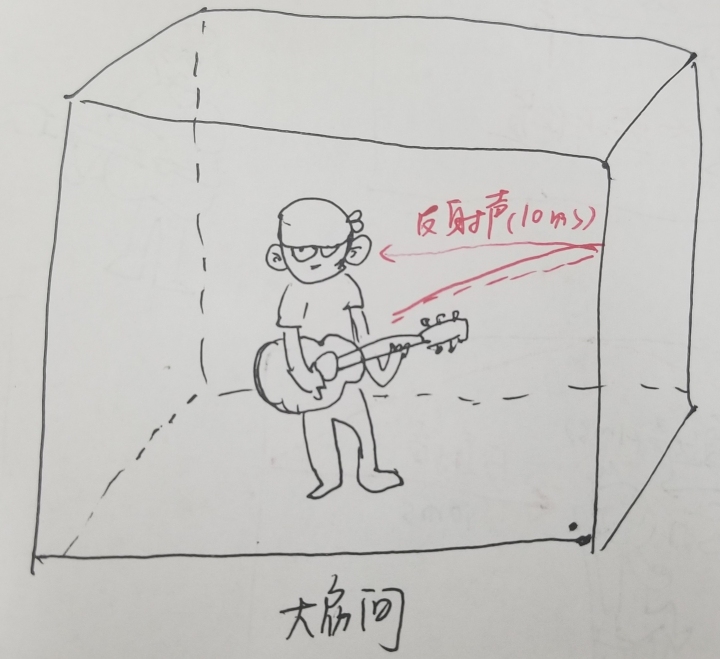 反射声(10ms)
大房间